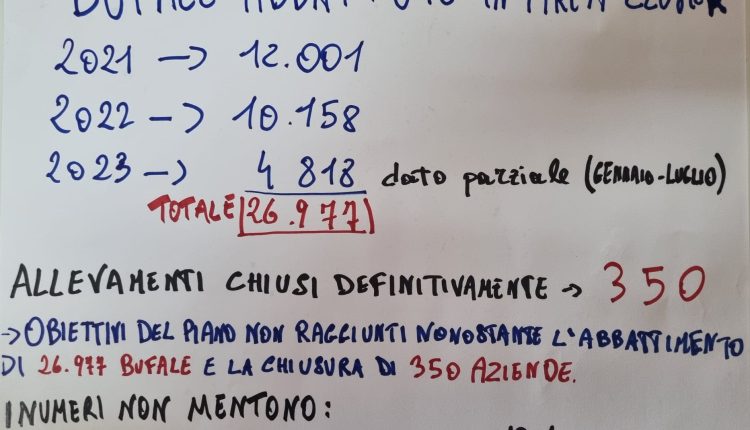 2021 -> 12.001
2022 -> 10.158
2023 -> 4 818 dato parziale (GENNAIO-LUGLIO)
TOTALE 26.977
ALLEVAMENTI CHIUSI DEFINITIVAMENTE -> 350
-> OBIETTIVI DEL PIANO NON RAGGIUNTI NONOSTANTE L'ABBATTIMENTO
DI 26.977 BUFALE E LA CHIUSURA DI 350 AZIENDE.
I NUMERI NON MENTONO: